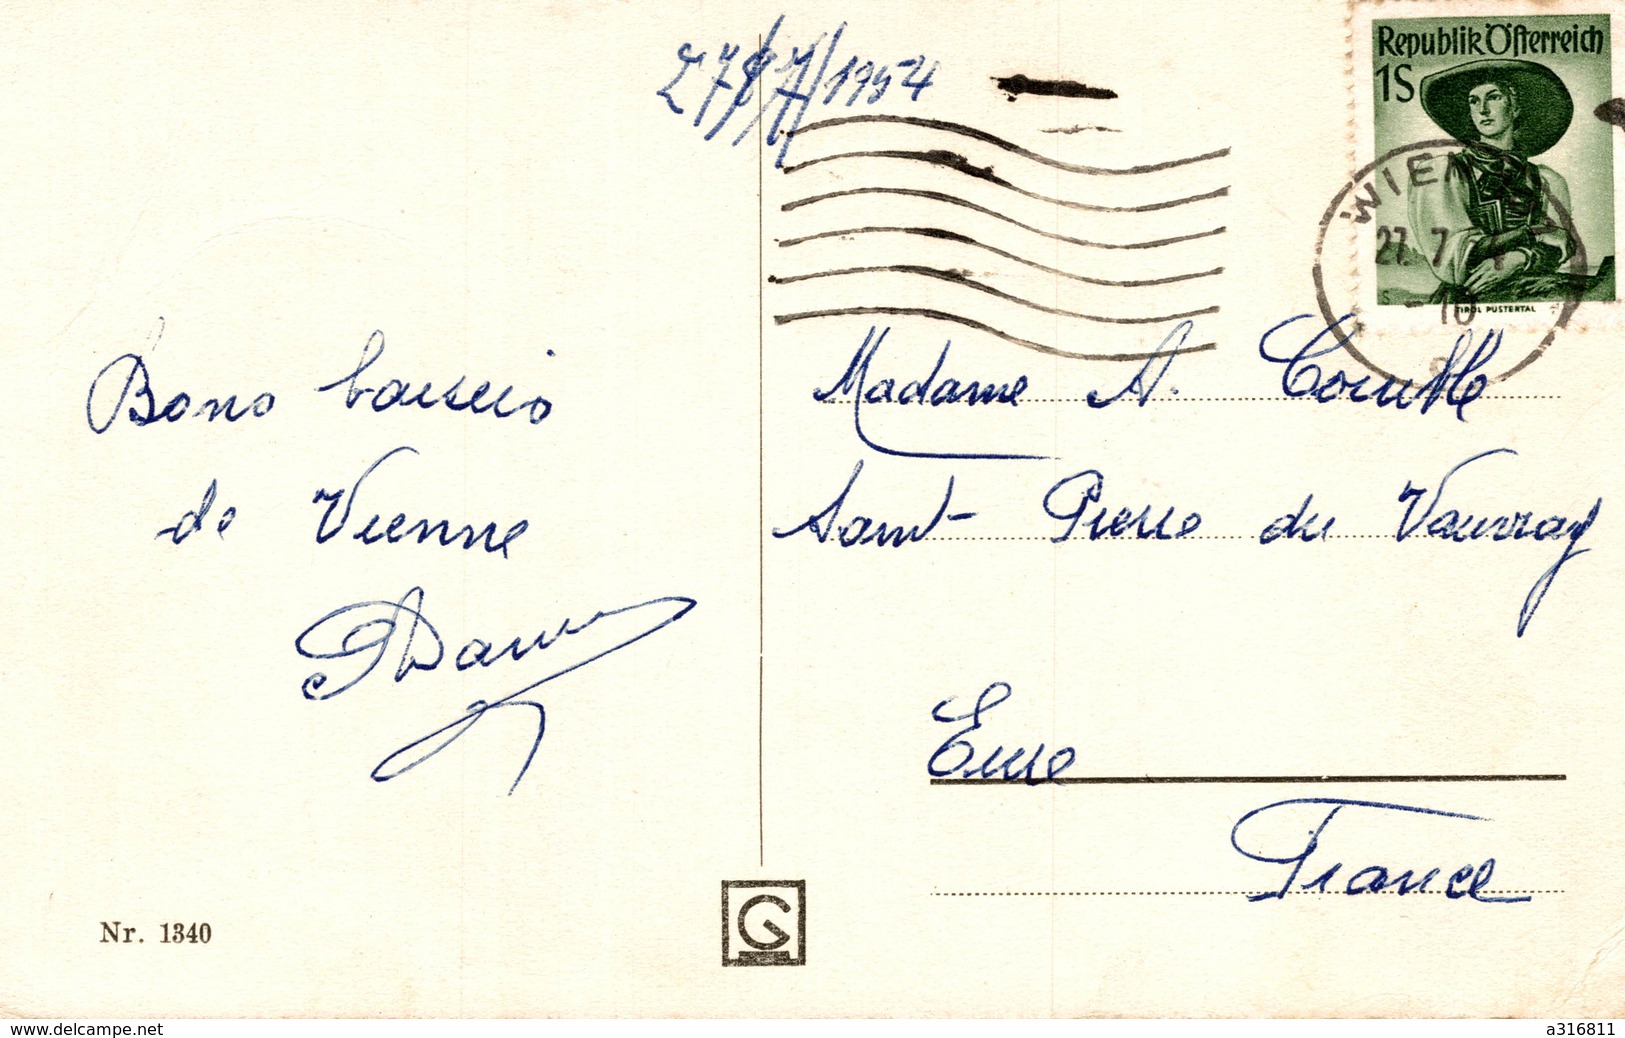 27/7/1954
Republik Österreich
1S
WIEN
27. 7
-10
TIROL PUSTERTAL
Bons baisers
de Vienne
Madame A.
Saint-Pierre du Vauvray
Eure
France
Nr. 1340
G
www.delcampe.net
a316811